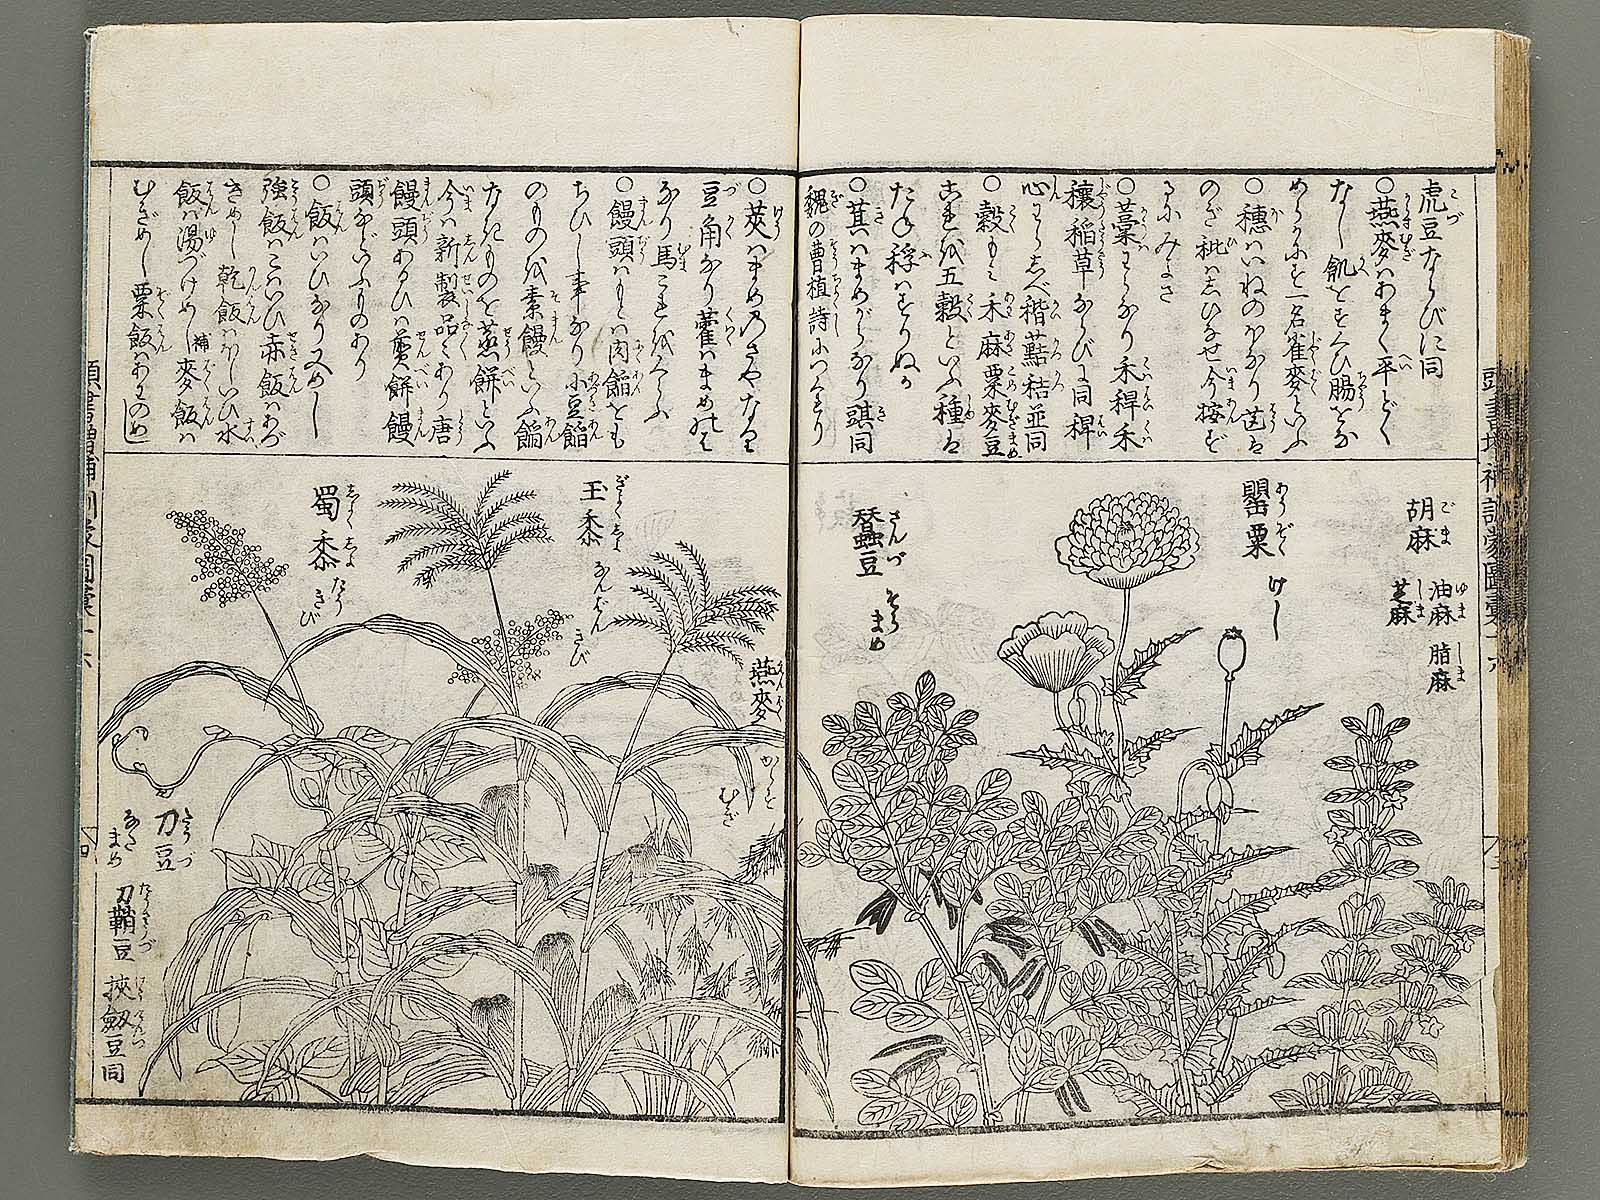 虎豆ならびに同
○燕麥はあまく平どく
なし飢をすくひ腸をな
めらかにす一名雀麥といふ
○穗はいねのほなり
のぎ秕はしひなせ今按ど
るにみよさ
○藁はわらなり禾稈禾
穰稻草ならびに同稈
心わらしべ稭
秸並同
○穀もみ禾麻粟麥豆
これを五穀といふ種は
たね稃はすりぬか
○萁はまめがらなり
同
魏の曹植詩につくれり
○莢はまめのさやなり
豆角なり藿はまめのは
なり馬これをくらふ
○饅頭はもとは肉餡をも
ちひし事なり小豆餡
のものを素饅といふ餡
なきものを蒸餅といふ
今は新製品々あり唐
饅頭あるひは煎餅饅
頭などいふものあり
○飯はいひなり又めし
強飯はこはいひ赤飯はあづ
きめし乾飯はほしいひ水
飯は湯づけめし補麥飯は
むぎめし粟飯はあわのめし
胡麻 ごま
油麻 ゆま
脂麻 しま
芝麻 しま
罌粟 あうぞく けし
蠶豆 さんづ そらまめ
燕麥 からすむぎ
玉黍 ぎよくしよ なんばんきび
蜀黍 しよくしよ たうきび
刀豆 たうづ なたまめ
刀鞘豆
挾劔豆同
頭書增補訓蒙圖彙十六